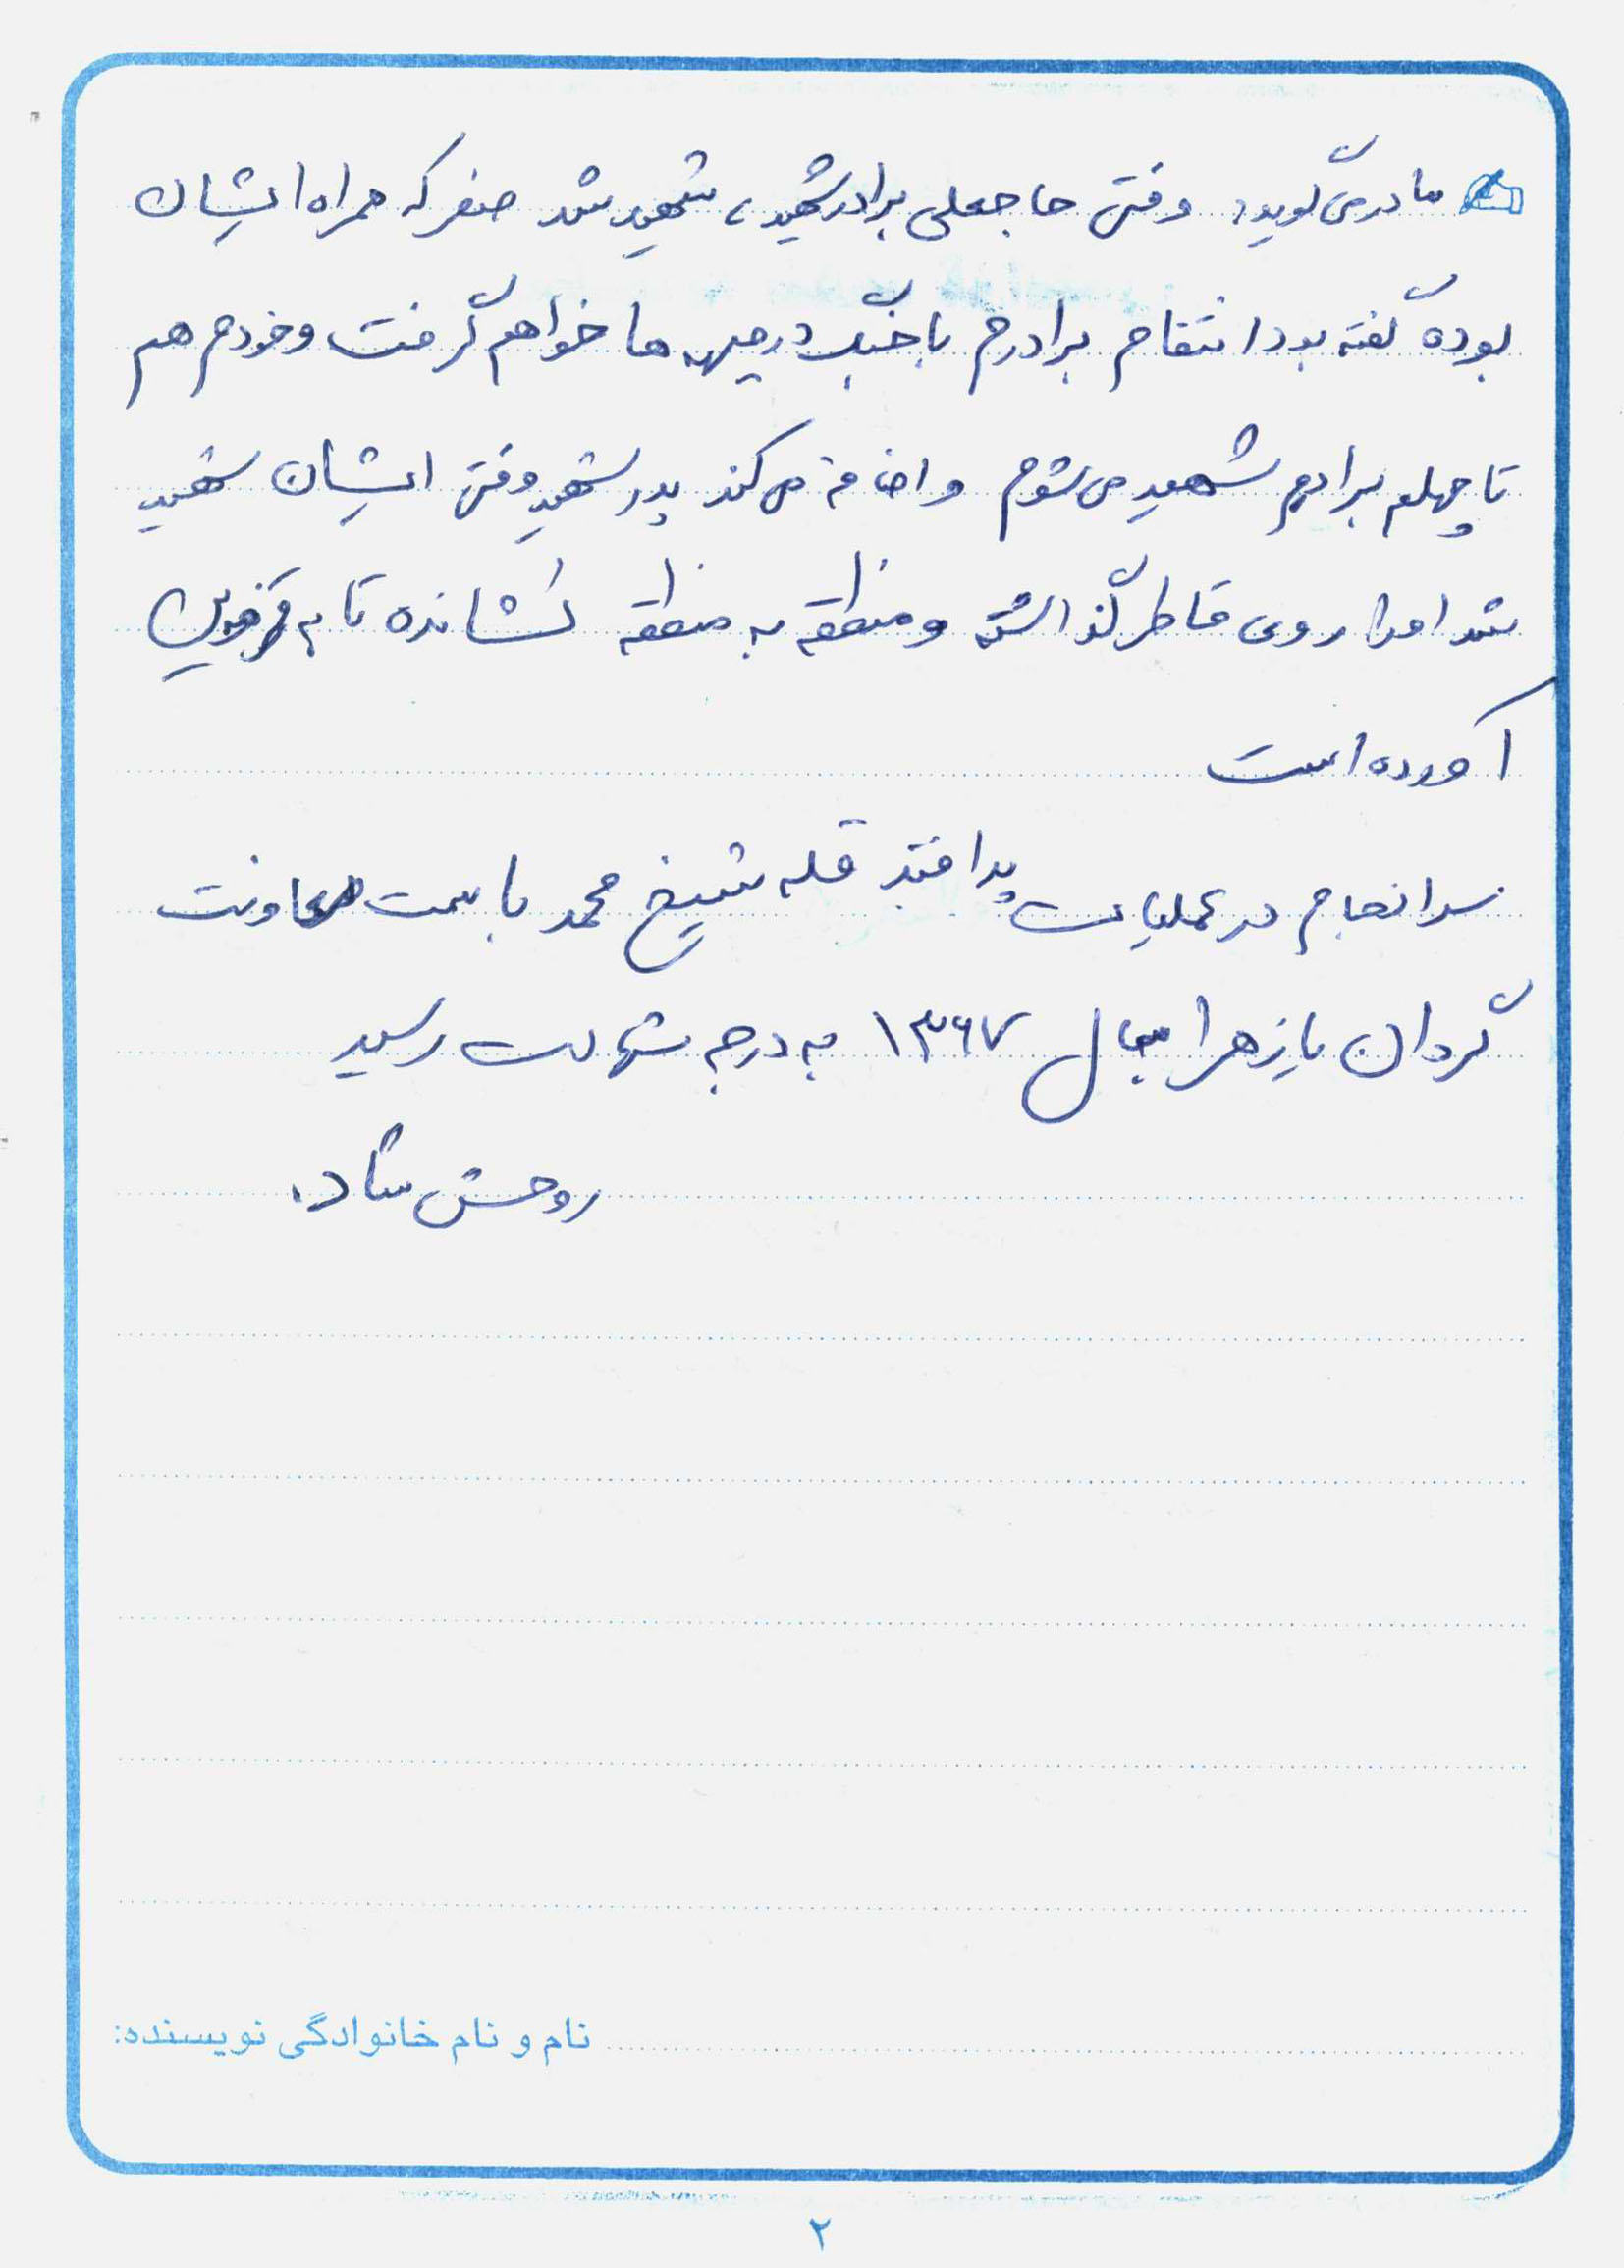 مادر می‌گوید: وقتی حاجعلی برادر شهید، شهید شد صفر که همراه ایشان
بوده گفته بود انتقام برادرم با جنگ در جبهه ها خواهم گرفت و خودم هم
تا چهلم برادرم شهید می‌شوم و اضافه می‌کند پدر شهید وقتی ایشان شهید
شد او را روی قاطر گذاشته و منطقه به منطقه کشانده تا به قزوین
آورده است
سرانجام در عملیات پدافند قله شیخ محمد با سمت معاونت
گردان یا زهرا بسال ۱۳۶۷ به درجه شهادت رسید
روحش شاد.
نام و نام خانوادگی نویسنده:
۲